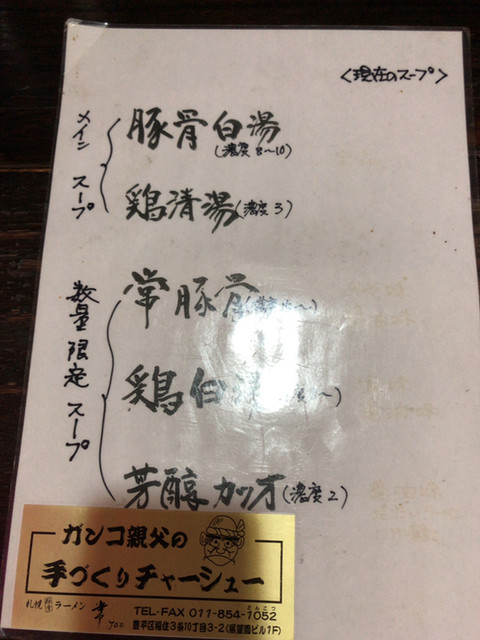 <現在のスープ>
メインスープ
豚骨白湯
(濃度8〜10)
鶏清湯(濃度3)
数量限定スープ
常豚骨
鶏白湯
芳醇カツオ(濃度2)
ガンコ親父の
手づくりチャーシュー
札幌 ラーメン 常
TEL・FAX 011-854-1052
とんこつ
豊平区福住3条10丁目3-2(展望閣ビル1F)